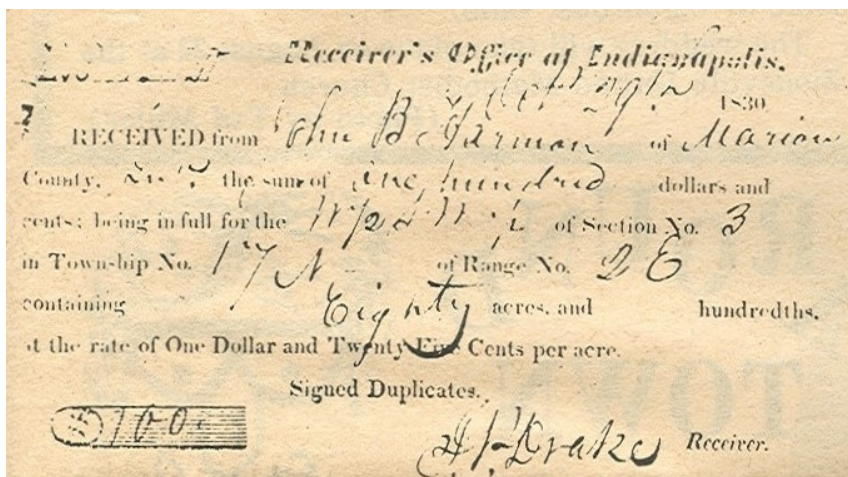 Receiver's Office at Indianapolis.
1830
RECEIVED from John B. Harmon of Marion
County, Ina. the sum of One hundred dollars and
cents; being in full for the W/2 S W/4 of Section No. 3
in Township No. 17 N of Range No. 2 E
containing Eighty acres, and hundredths,
at the rate of One Dollar and Twenty Five Cents per acre.
Signed Duplicates.
$ 100. Drake Receiver.